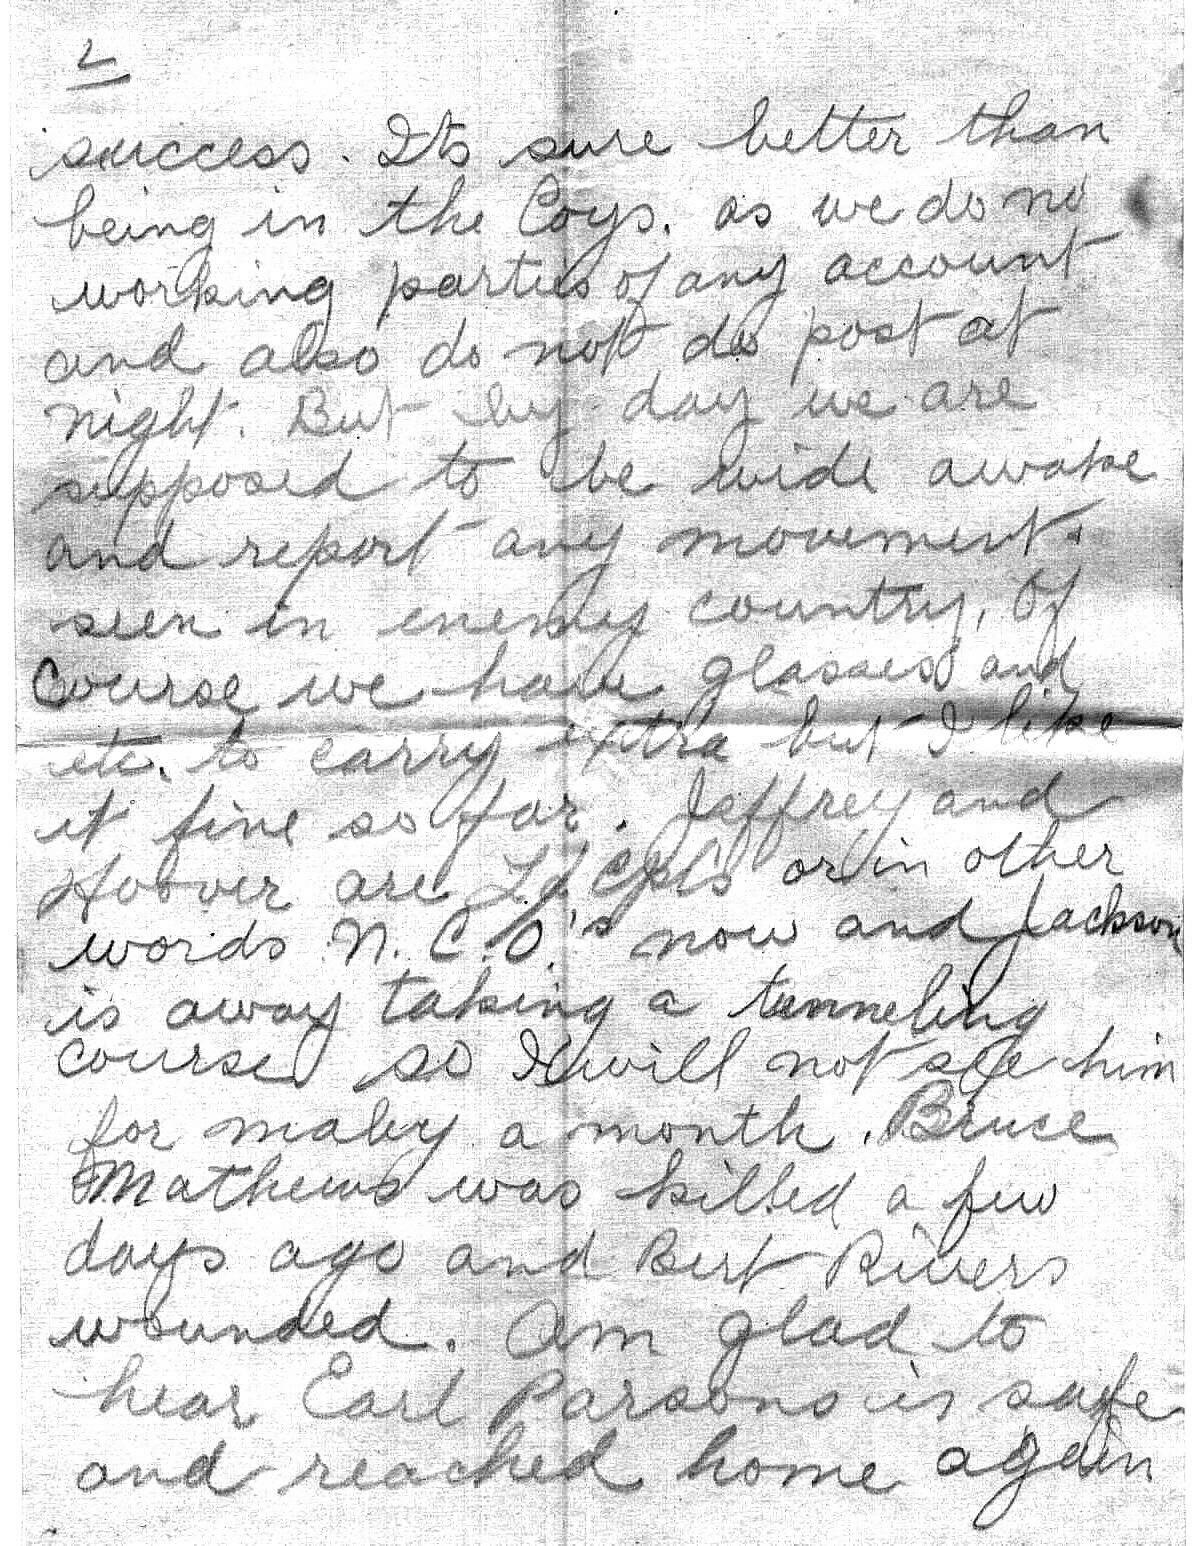 2
success. Its sure better than
being in the Coys. as we do no
working parties of any account
and also do not do post at
night. But by day we are
supposed to be wide awake
and report any movement
seen in enemy country, Of
Course we have glasses and
etc. to carry extra but I like
it fine so far. Jeffrey and
Hoover are L/Cpls or in other
words N.C.O.'s now and Jackson
is away taking a tunneling
course so I will not see him
for maby a month. Bruce
Mathews was killed a few
days ago and Bert Rivers
wounded. Am glad to
hear Earl Parsons is safe
and reached home again